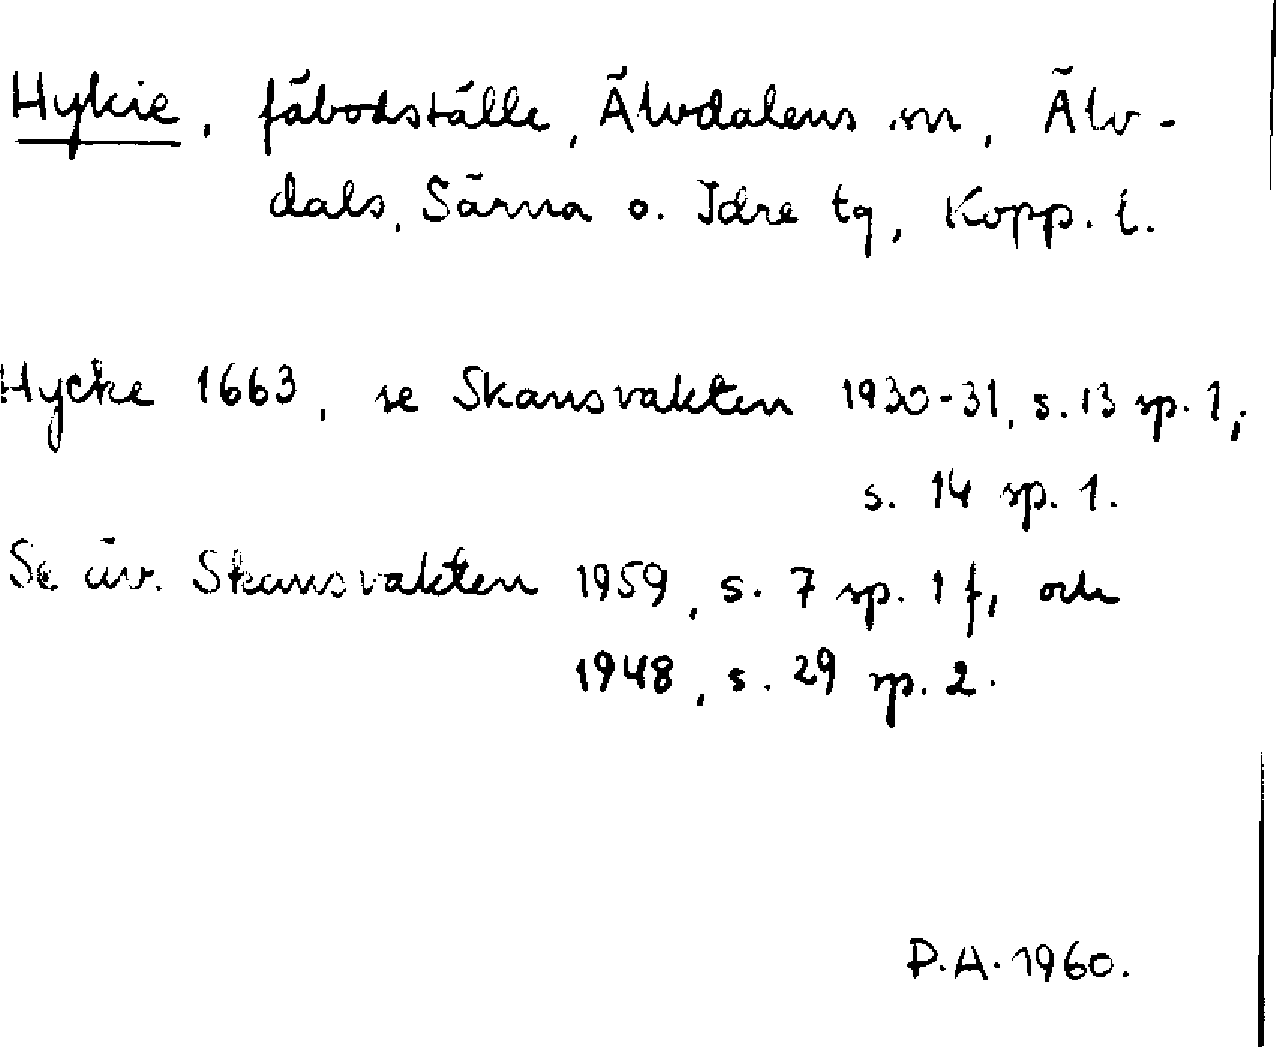 Hykie, fäbodställe, Älvdalens sn, Älv-
dals, Särna o. Idre tg, Kopp. l.
Hycke 1663, se Skansvakten 1930-31, s. 13 sp. 1;
s. 14 sp. 1.
Se äv. Skansvakten 1959, s. 7 sp. 1 f, och
1948, s. 29 sp. 2.
P.A. 1960.